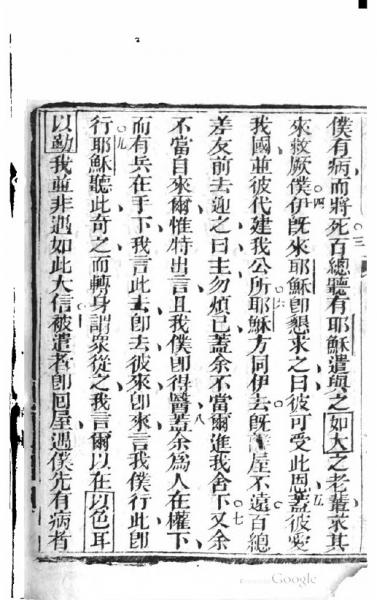 僕有病而將死百總聽有耶穌遣與之如大之老輩求其
來救厥僕伊旣來耶穌卽懇求之曰彼可受此恩蓋彼愛
我國並彼代建我公所耶穌方同伊去旣離屋不遠百總
差友前去迎之曰主勿煩己蓋余不當爾進我舍下又余
不當自來爾惟特出言且我僕卽得醫蓋余為人在權下
而有兵在手下我言此去卽去彼來卽來言我僕行此卽
行耶穌聽此奇之而轉身謂眾從之我言爾以在以色耳
以勒我並非遇如此大信被遣者卽囘屋遇僕先有病者
三
四
五
六
七
八
九
十
Google